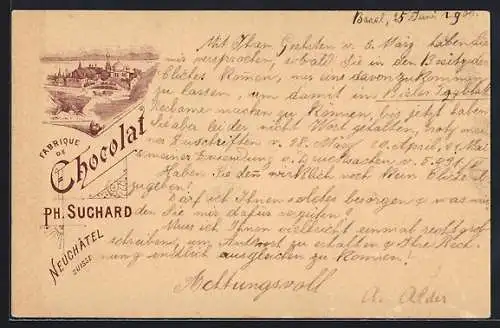 Basel, 25 Juni 190
Mit Ihrem Geehrten v. 6. März haben Sie
mir versprochen, sobald Sie in den Besitz der
Cliches kommen, mir eine davon zukommen
zu lassen, um damit in Basler Tagblatt
Reclame machen zu können, bis jetzt haben
Sie aber leider nicht Wort gehalten, trotz mei-
ner Zuschriften v. 28. März, 10. April, Mai
meiner Zusendung von Drucksachen v.
Haben Sie denn wirklich noch kein Cliche
zugeben!
Darf ich Ihnen solches besorgen & was wür-
den Sie mir dafür vergüten?
Muss ich Ihnen vielleicht einmal recht grob
schreiben, um Antwort zu erhalten & Ihre Rech-
nung endlich ausgleichen zu können!
Achtungsvoll
A. Alder
FABRIQUE
DE
Chocolat
PH. SUCHARD
NEUCHÂTEL
SUISSE